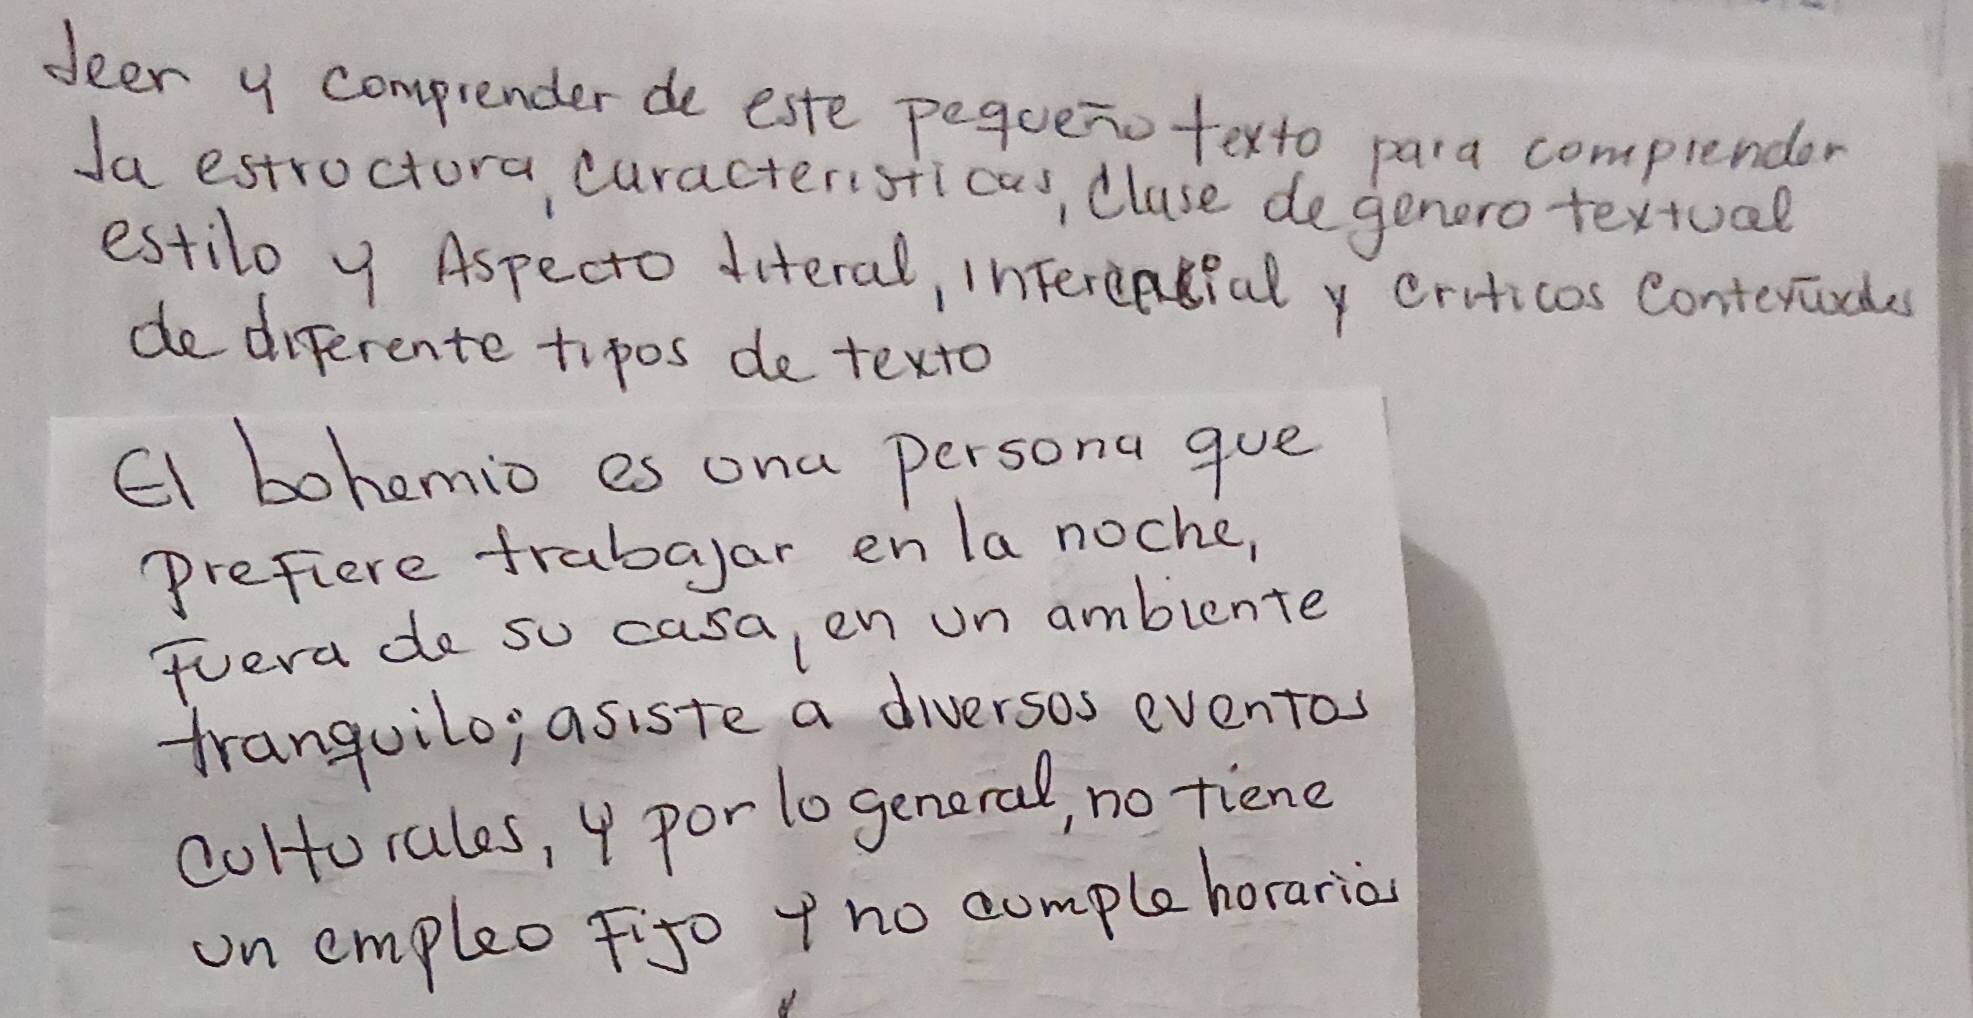 Leer y comprender de este pequeño texto para comprender
la estructura, caracteristicas, clase de genero textual
estilo y Aspecto literal, y criticos
de diferente tipos de texto
El bohemio es una persona que
prefiere trabajar en la noche,
fuera de su casa, en un ambiente
tranquilo; asiste a diversos eventos
culturales, y por lo general, no tiene
un empleo fijo y no cumple horarios